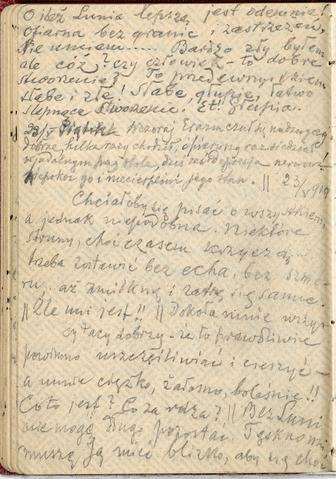 O ileż Lunia lepszą jest odemnie!
Ofiarna bez granic i zastrzeżeń.
Nie umiem..... Bardzo zły byłem
ale cóż? czy człowiek - to dobre
stworzenie? To przedewszystkiem
słabe i złe! Słabe, głupie, łatwo
stworzenie! Et! głupia.
Piątek. Wczoraj Erazm czuł się
dobrze, kilka razy chodził,
w jadalnym przy stole, dziś
niepokoi go i niecierpliwi jego stan. || 23/V 919
Chciałoby się pisać o wszystkiem
a jednak niepodobna. Niektóre
struny, choć czasem krzyczą...
trzeba zostawić bez echa, bez szme-
ru, aż zmilkną i same
|| Źle mi jest!! || Dokoła mnie wszys-
cy tacy dobrzy - że to prawdziwie
powinno uszczęśliwiać i cieszyć -
a mnie ciężko, żałośno, boleśnie!!
Co to jest? Co za rodza? || Bez Luni
nie mogę długo pozostać. Tęsknię
muszę Ją mieć blizko, aby są choć